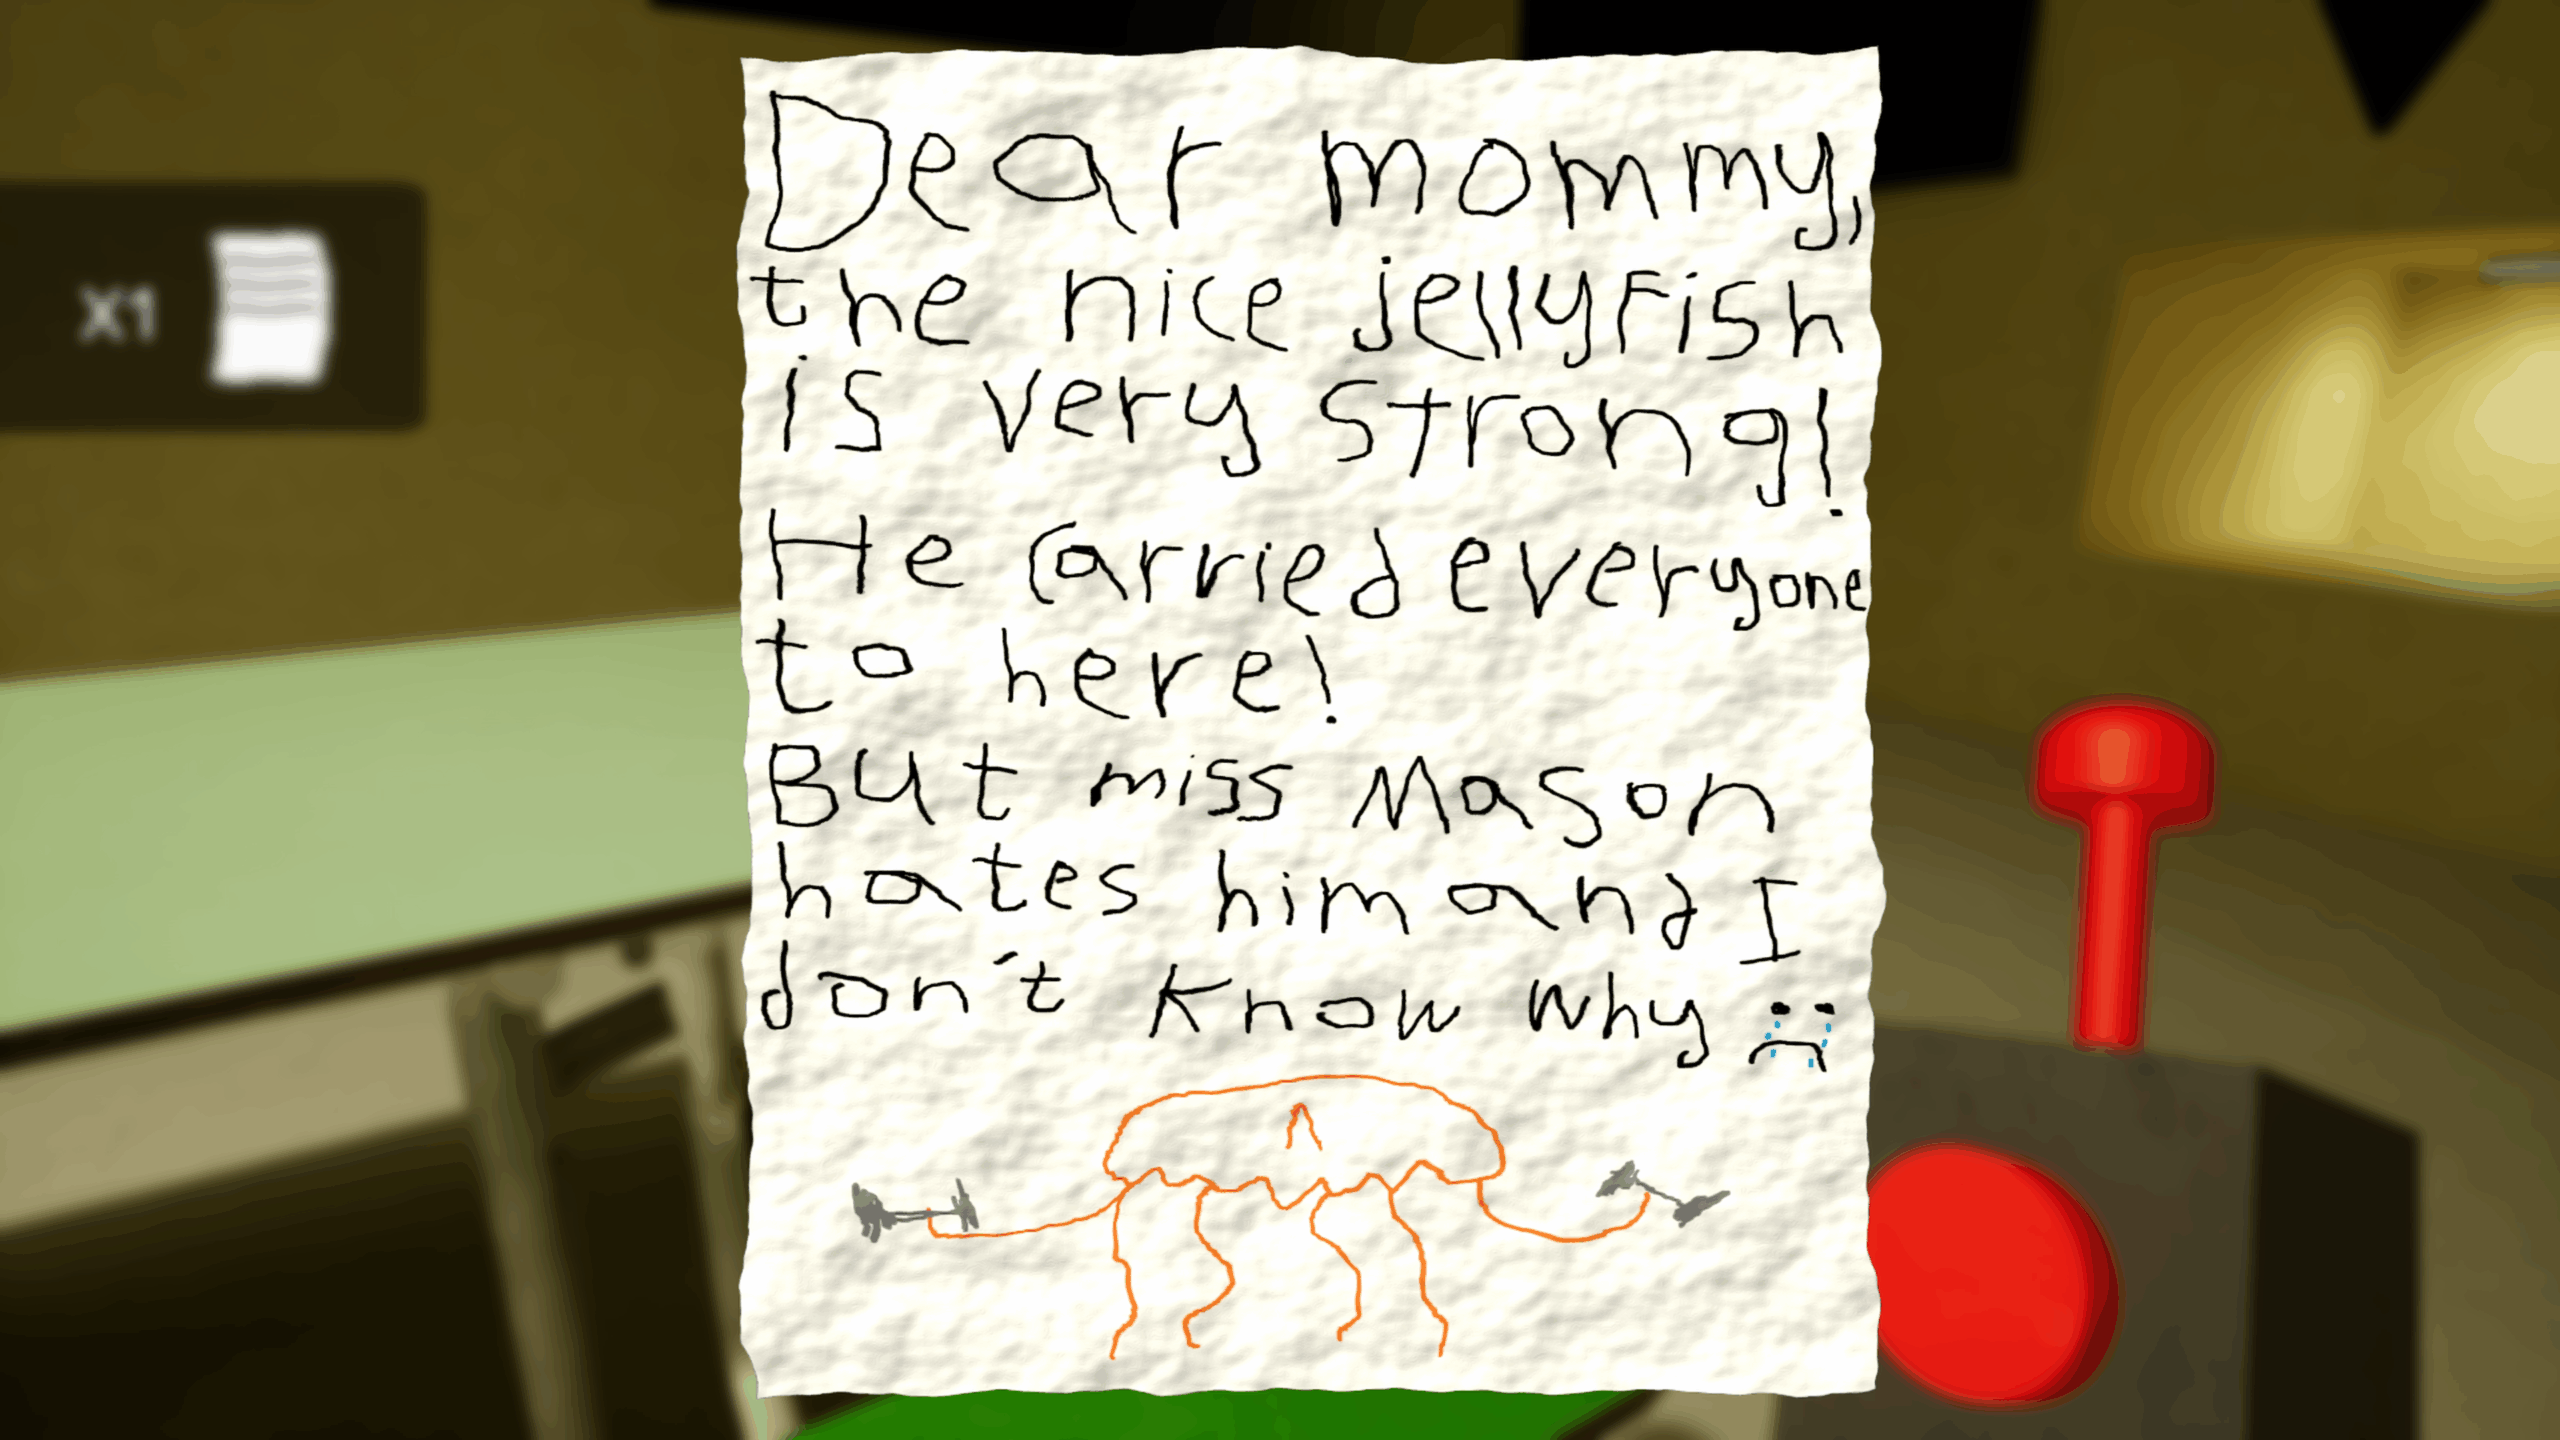 X1
Dear mommy,
the nice jellyfish
is very strong!
He carried everyone
to here!
But miss Mason
hates him and I
don't know why